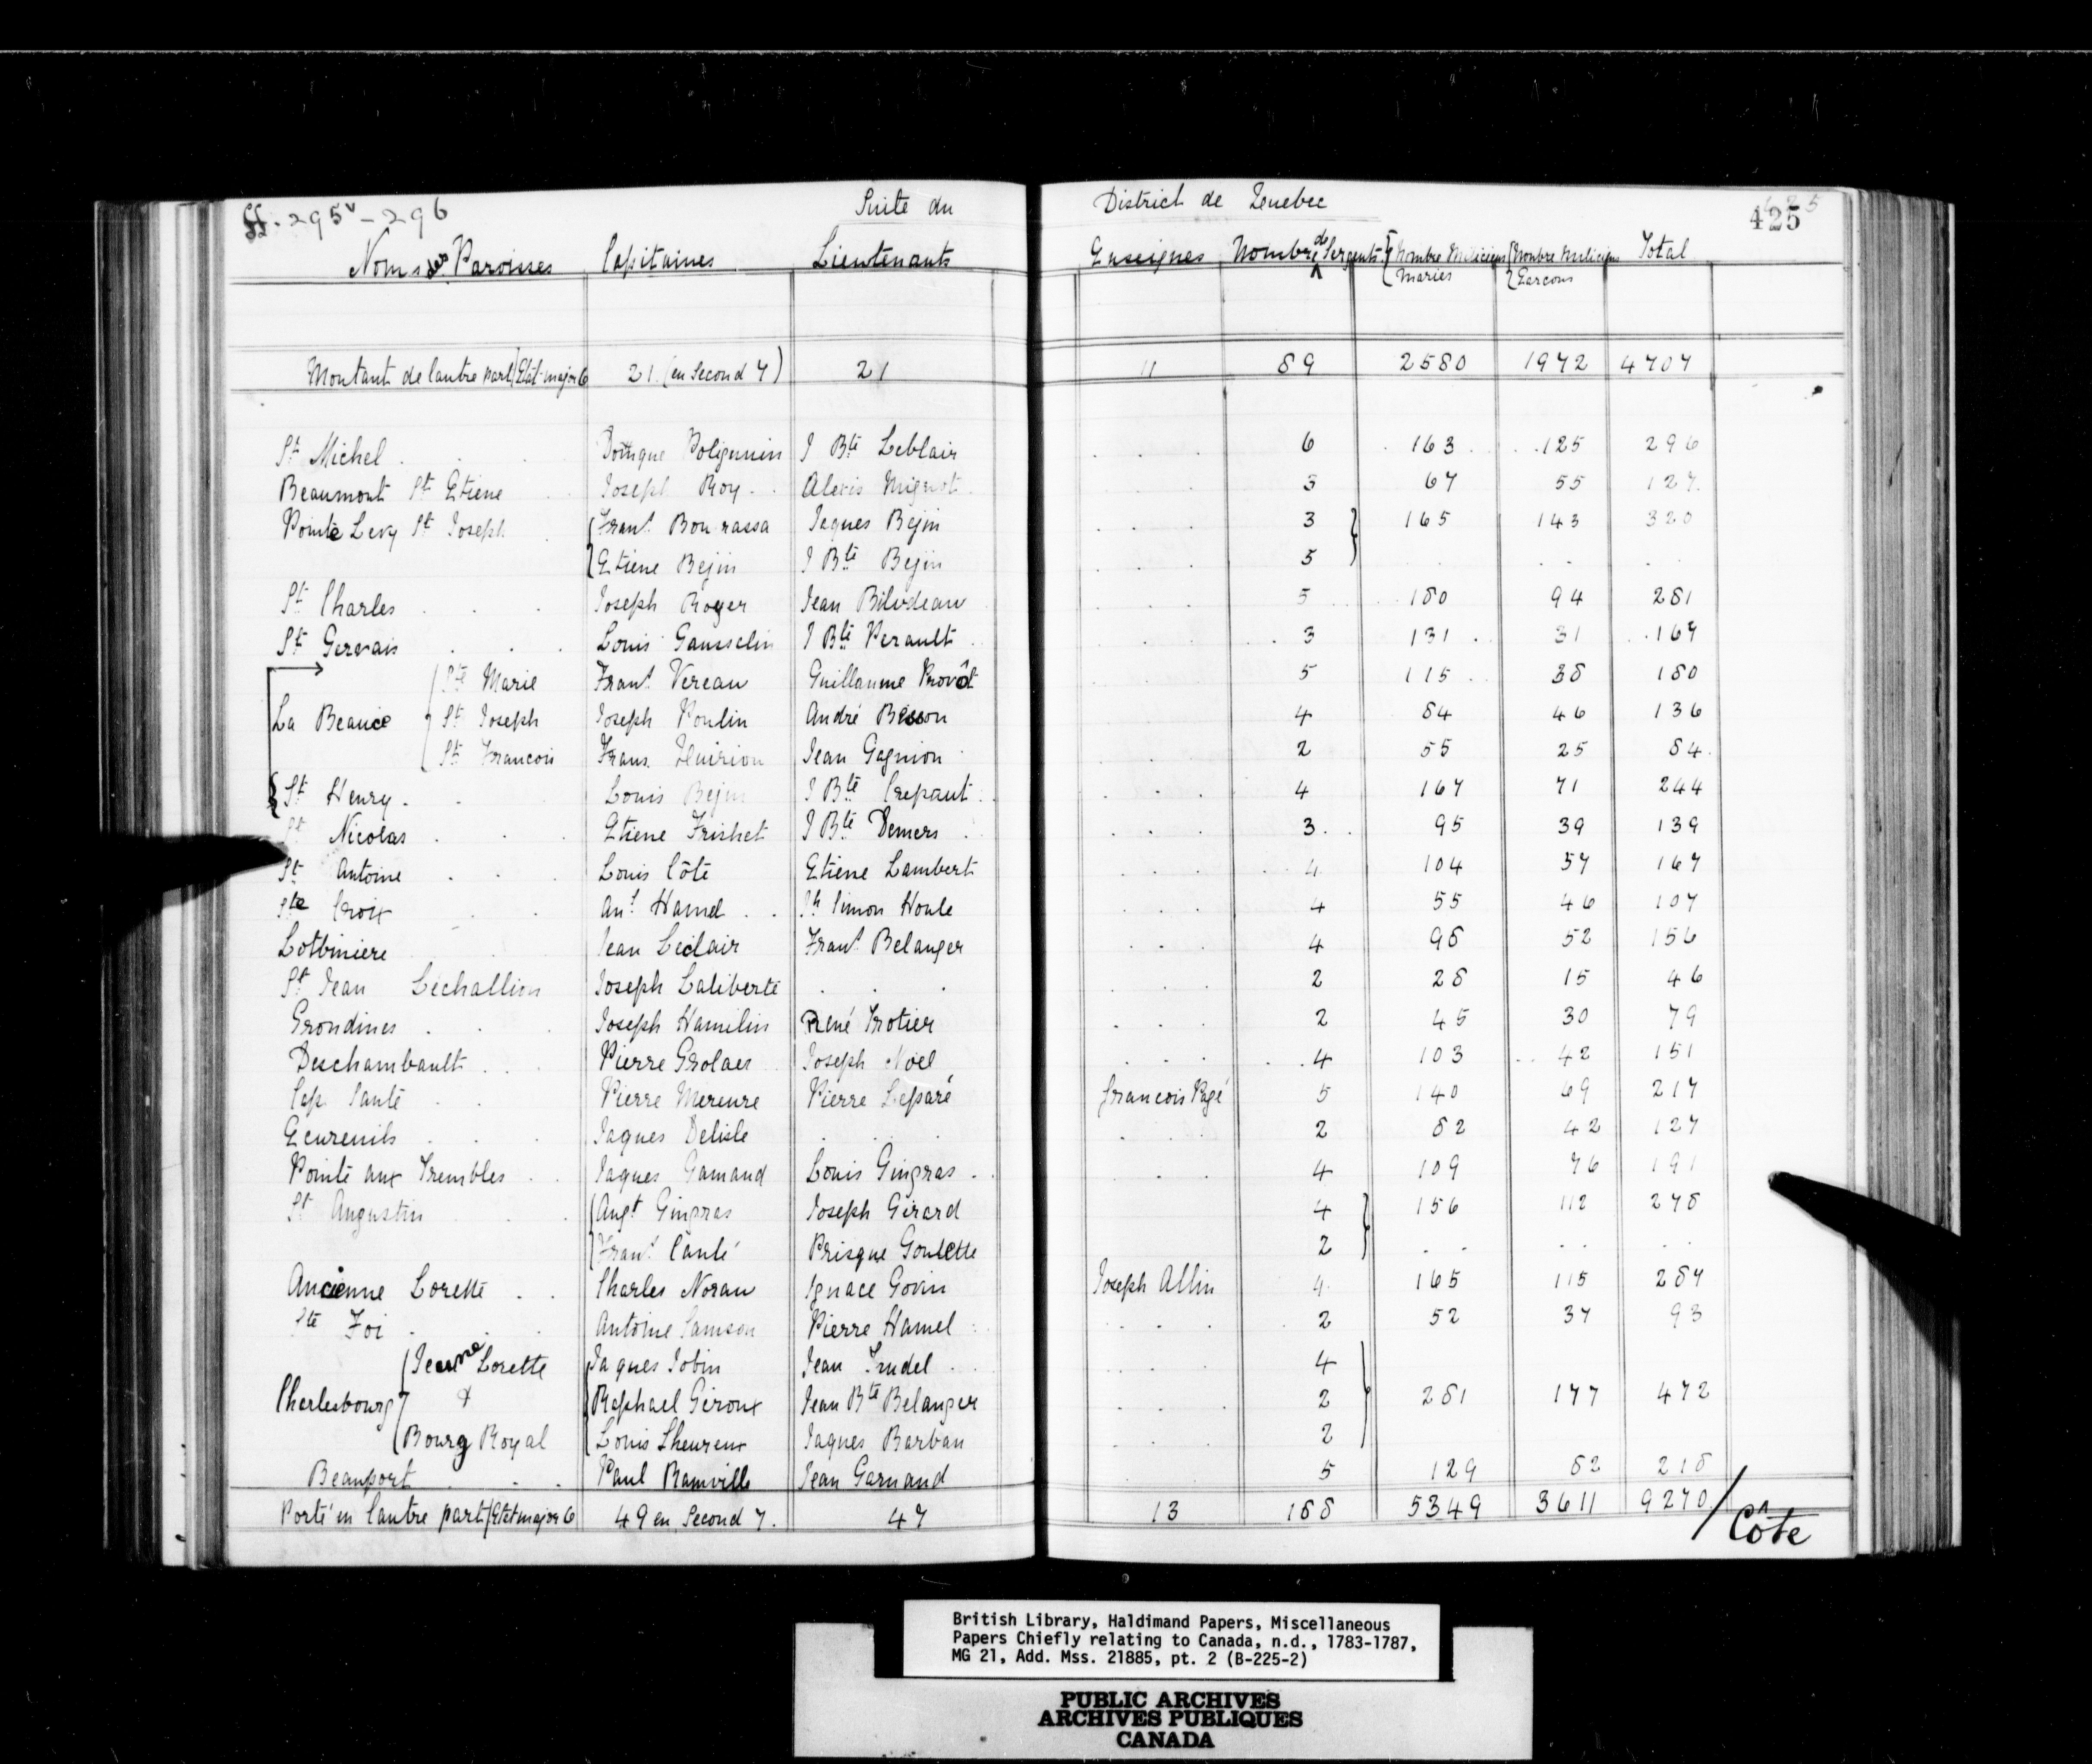 ff. 295v - 296 Suite du District de Quebec 425
Noms des Paroisses Capitaines Lieutenants Enseignes Nombre de Sergents Nombre Miliciens Mariés Nombre Miliciens Garcons Total
Montant de lautre part / Etat-major 6 21. (en Second 7) 21 11 89 2580 1972 4707
St Michel Domque Poliquin J Bte Leblair 6 163 125 296
Beaumont St Etiene Joseph Roy Alexis Mignot 3 67 55 127
Pointe Levy St Joseph Frans. Bourassa Jaques Bejin 3 165 143 320
Etiene Bejin J Bte Bejin 5
St Charles Joseph Royer Jean Bilodeau 5 180 94 281
St Gervais Louis Gausselin J Bte Perault 3 131 31 167
Ste Marie Frans. Vereau Guillaume Provôt 5 115 38 180
La Beauce St Joseph Joseph Poulin André Besson 4 84 46 136
St Francois Frans. Quirion Jean Gagnion 2 55 25 84
St Henry Louis Bejin J Bte Crepaut 4 167 71 244
St Nicolas Etiene Frichet J Bte Demers 3 95 39 139
St Antoine Louis Côte Etiene Lambert 4 104 57 167
Ste Croix Ant. Hamel Jh Simon Houle 4 55 46 107
Lotbiniere Jean Leclair Frans. Belanger 4 98 52 156
St Jean Lechallion Joseph Laliberte 2 28 15 46
Grondines Joseph Hamilin René Trotier 2 45 30 79
Deschambault Pierre Grolaes Joseph Noel 4 103 42 151
Cap Santé Pierre Mercure Pierre Leparé francois Pagé 5 140 69 217
Ecureuils Jaques Delisle 2 82 42 127
Pointe aux Trembles Jaques Gamand Louis Gingras 4 109 76 191
St Augustin Augt Gingras Joseph Girard 4 156 112 278
Frans. Cânté Prisque Goulette 2
Ancienne Lorette Charles Noraw Ignace Govin Joseph Allin 4 165 115 287
Ste Foi Antoine Samson Pierre Hamel 2 52 37 93
Jeune Lorette Jaques Jobin Jean Trudel 4
Charlesbourg & Raphael Giroux Jean Bte Belanger 2 281 177 472
Bourg Royal Louis Lheureux Jaques Barbau 2
Beauport Paul Rainville Jean Garnaud 5 129 82 218
Porté en lautre part / Etat major 6 49 en Second 7. 47 13 188 5349 3611 9270 / Côte
British Library, Haldimand Papers, Miscellaneous
Papers Chiefly relating to Canada, n.d., 1783-1787,
MG 21, Add. Mss. 21885, pt. 2 (B-225-2)
PUBLIC ARCHIVES
ARCHIVES PUBLIQUES
CANADA